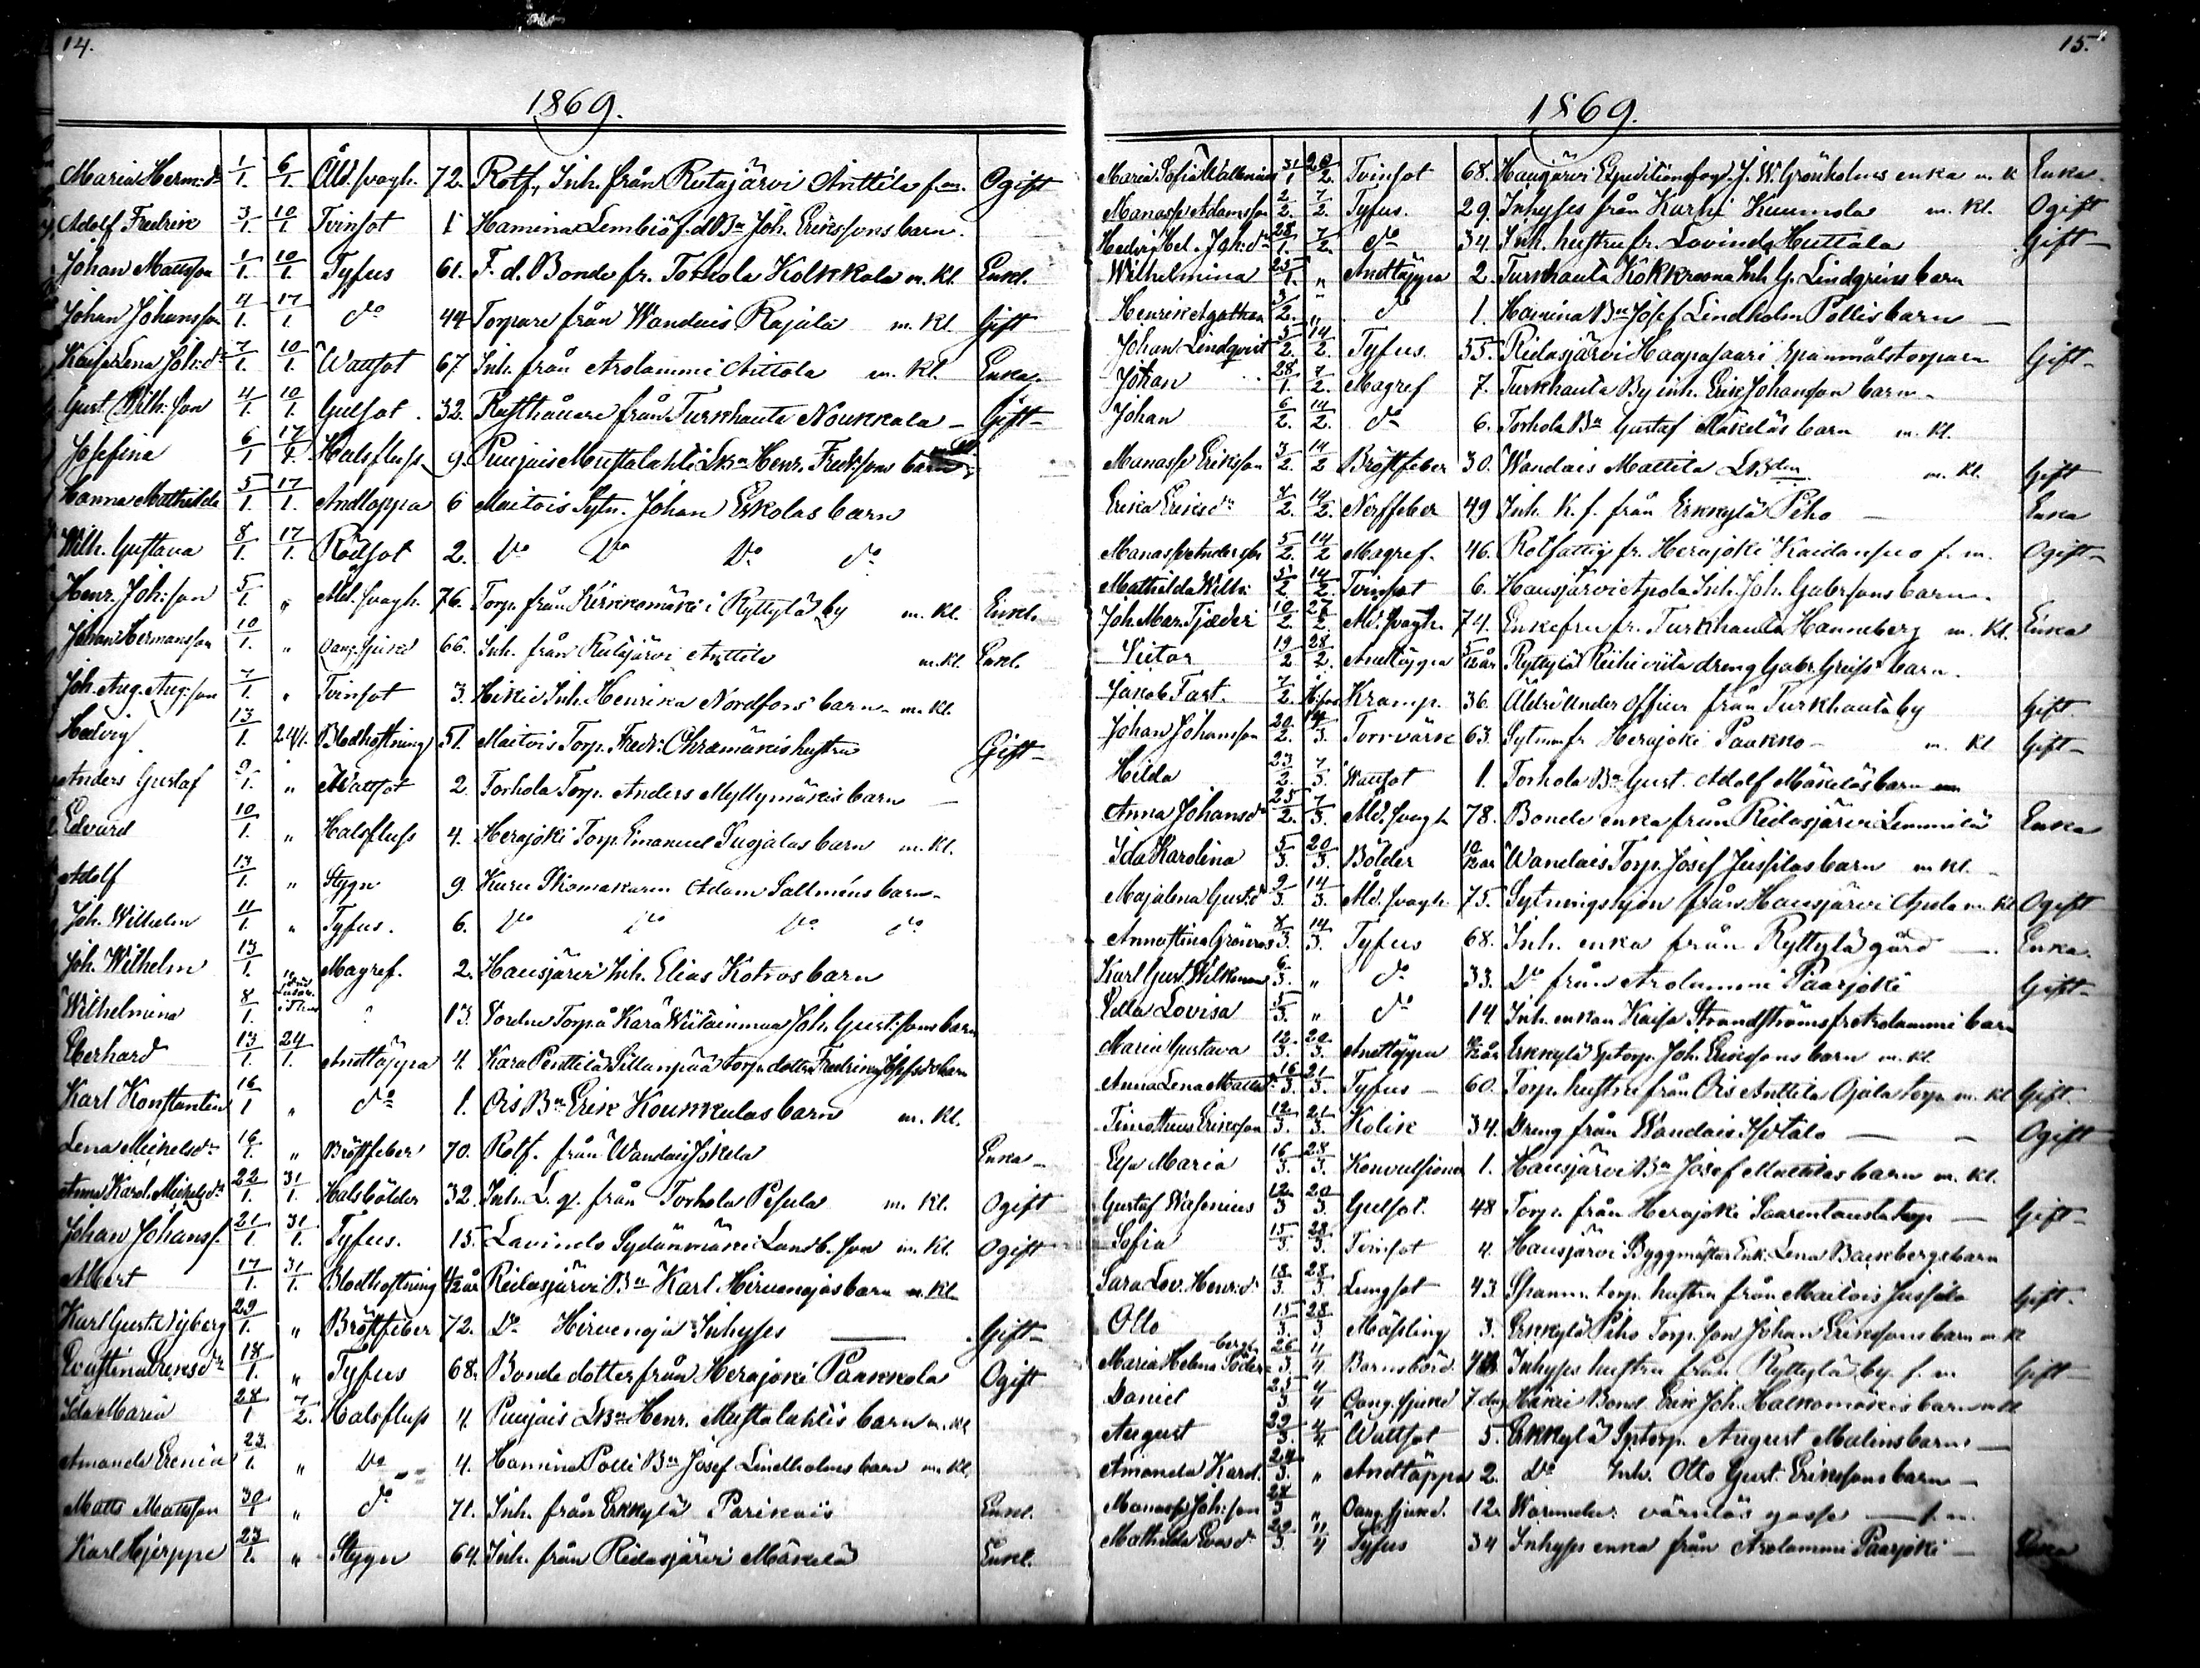 14.
1869.
Maria Herm:dr 1/1. 6/1. Åld. svagh. 72. Rotf. Inh. från Rutajärvi Anttila f. m. Ogift
Adolf Fredrik 3/1. 10/1. Tvinsot 1 Hamina Lembiö f. d. Bn Joh. Erikssons barn.
Johan Mattsson 1/1. 10/1. Tyfus 61. F. d. Bonde fr. Torhola Kolkkala m. kl. Enkl.
Johan Johansson 4/1. 17/1. do 44 Torpare från Wandais Rajala m. kl. Gift
Kaisa Lena Joh:dr 7/1. 10/1. Wattsot 67 Inh. från Arolammi Aittola m. kl. Enka
Gust. Wilh:son 4/1. 10/1. Gulsot. 32. Rusthållare från Turkhauta Noukkala Gift
Josefina 6/1 17/1. Halsfluss 9. Puujais Mustalahti LBn Henr. Fredr:sons barn
Hanna Mathilda 5/1. 17/1. Andtäppa 6 Maitois Sytn. Johan Eskolas barn
Wilh. Gustava 8/1. 17/1. Rödsot 2. Do Do Do do
Henr. Joh:son 5/1. " Åld. svagh. 76. Torp. från Kirkkomäki i Ryttylä by m. kl. Enkl.
Johan Hermansson 10/1. " Oang. sjukd 66. Inh. från Rutajärvi Anttila m. kl. Enkl.
Joh. Aug. Aug:son 7/1. " Tvinsot 3. Hikiä Inh. Henrika Nordfors barn m. kl.
Hedvig 13/1. 24/1. Blodhostning 51. Maitois Torp. Fredr: Ohramäkis hustru Gift
Anders Gustaf 9/1. " Wattsot 2. Torhola Torp. Anders Myllymäkis barn
Edvard 10/1. " Halsfluss 4. Herajoki Torp. Emanuel Suojalas barn m. kl.
Adolf 13/1. " Stygn 9. Kuru Skomakaren Adam Sallméns barn
Joh. Wilhelm 11/1. " Tyfus. 6. Do Do Do do
Joh. Wilhelm 13/1. Magref. 2. Hausjärvi Inh. Elias Kotros barn
Wilhelmina 8/1. " 13. Torp. å Kara Joh. Gust:sons barn
Eberhard 13/1. 24/1. Andtäppa 4. Kara Penttilä Sillanpää torp. dotter barn
Karl Konstantin 16/1 " do 1. Ois Bn Erik Koukkulas barn m. kl.
Lena Mickelsdr 16/1. " Bröstfeber 70. Rotf. från Wandais Jskela Enka
Anna Karol. Mickelsdr 22/1. 31/1. Halsbölder 32. Inh. L. q. från Torhola Pesula m. kl. Ogift
Johan Johanss. 21/1. 31/1. Tyfus. 15. Lavinto Sydänmäki Landb. son m. kl. Ogift
Albert 17/1. 31/1. Blodhostning 1/2 år Ridasjärvi Bn Karl Hirvenojas barn m. kl.
Karl Gust. Nyberg 29/1. " Bröstfeber 72. Do Hirvenoja Inhyses Gift
Evastina Eriksdr 18/1. " Tyfus 68. Bonde dotter från Herajoki Paakkola Ogift
Ida Maria 28/1 7/2. Halsfluss 4. Puujais LBn Henr. Mustalahtis barn m. kl
Amanda Erenia 23/1. " Do 4. Hamina Polli Bn Josef Lindholms barn m. kl.
Matts Mattsson 30/1 " do 71. Inh. från Erkkylä Parikais Enkl.
Karl Hjerppe 23/1. " Stygn 64. Inh. från Ridasjärvi Mäkelä Enkl.
15.
1869.
Maria Sofia 31/1 2. Tvinsot 68. Hausjärvi Expeditionsfog. J. W. Grönholms enka m. k Enka.
Manasse Adamsson 2/2. 7/2. Tyfus. 29. Inhyses från Karhi Kuumola m. kl. Ogift
Hedvig Hel. Joh:dr 28/1. 7/2. do 34 Inh. hustru fr. Lavinto Huttala Gift
Wilhelmina 25/1. " Andtäppa 2. Turkhauta Kokkraana Inh. G. Lindgrens barn
Henrik Agathon 3/2. " do 1. Hamina Bn Josef Lindholm Pollis barn
Johan Lindqvist 5/2. 14/2. Tyfus. 55. Ridasjärvi Haapasaari Spanmålstorparn Gift
Johan 28/1. 7/2. Magref 7. Turkhauta By inh. Erik Johansson barn
Johan 6/2. 14/2. do 6. Torhola Bn Gustaf Mäkeläs barn m. kl.
Manasse Eriksson 3/2. 14/2 Bröstfeber 30. Wandais Mattila LBden m. kl. Gift
Erika Eriksdr 7/2. 14/2. Nerffeber 49 Inh. K. f. från Erkkylä Piho Enka
Manasse Andersson 5/2. 14/2 Magref. 46. Rotfattig fr. Herajoki Kaidansuo f. m. Ogift
Mathilda Wilh: 5/2 14/2. Tvinsot 6. Hausjärvi Apola Inh. Joh. Gabr:sons barn.
Joh. Mar. Tjäder 10/2. 27/2. Åld. svagh. 74. Enkefru fr. Turkhauta Hanneberg m. kl. Enka
Victor 19/2 28/2. Andtäppa 5/12 år Ryttylä Riihiviita dreng Gabr. barn.
Jakob Fast. 7/2. Kramp. 36. Äldre Under officer från Turkhauta by Gift
Johan Johansson 20/2. 14/3. Torrvärk 63. Sytn. fr Herajoki Paakko m. kl Gift
Hilda 23/2. 7/3. Wattsot 1. Torhola Bn Gust. Adolf Mäkeläs barn
Anna Johansdr 25/2. 7/3. Åld. svagh 78. Bonde enka från Ridasjärvi Lemmilä Enka
Ida Karolina 5/3. 20/3. Bölder 10/12 år Wandais Torp. Josef Jussilas barn m kl.
Majalena Gust:dr 9/3. 14/3. Åld. svagh. 75. Sytningshjon från Hausjärvi Apola m. kl Ogift
Annastina Grönroos 8/3. 14/3. Tyfus 68. Inh. enka från Ryttylä gård Enka.
Karl Gust. Wilkman 6/3. " do 33. Do från Arolammi Paarjoki Gift
Ulla Lovisa 5/3. " do 14 Inh. enkan Kaisa Strandströms fr Arolammi barn
Maria Gustava 12/3. 20/3. Andtäppa Erkkylä Sptorp. Joh. Erikssons barn m. kl.
Anna Lena Mattsdr 16/3. 21/3. Tyfus 60. Torp. hustru från Ois Anttila Ojala torp m. kl Gift
Timotheus Eriksson 12/3. 21/3. Kolik 34. Dreng från Wandais Isotalo Ogift
Eva Maria 16/3. 28/3. Konvulsioner 1. Hausjärvi Bn Josef Mattilas barn m. kl.
Gustaf Wasenius 12/3 20/3. Gulsot. 48 Torp. från Herajoki Saarentausta torp Gift
Sofia 15/3. 28/3. Tvinsot 4. Hausjärvi Byggmästar Enk. Lena Backbergs barn
Sara Lov. Henr:dr 18/3. 28/3. Lungsot 43. Spanm. torp. hustru från Maitois Jussila Gift
Otto 15/3. 28/3. Mässling 3. Erkkylä Piho Torp. son Johan Erikssons barn m. k
Maria Helena Söderberg 26/3. 4/4. Barnsbörd Inhyses hustru från Ryttylä by. f. m Gift
Daniel 25/3 4/4 Oang. sjukd 7 dag Bond. Erik Joh. barn
August 29/3. 4/4. Wattsot 5. Erkkylä Sptorp. August Malins barn
Amanda Karol. 24/3. " Andtäppa 2. do Inh. Otto Gust. Erikssons barn
Manasse Joh:son 28/3 " Oang. sjukd. 12. värnlös gosse f. m.
Mathilda Evasdr 29/3. 11/4 Tyfus 34 Inhyses enka från Arolammi Paarjoki Enka